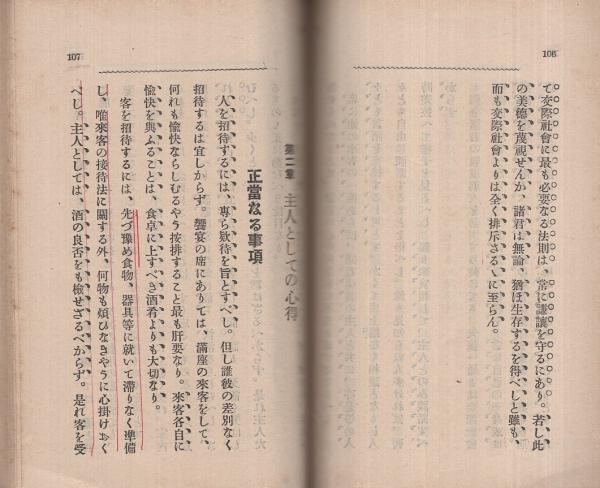 106
て交際社會に最も必要なる法則は、常に謙讓を守るにあり。若し此
の美德を蔑視せんか、諸君は無論、猶ほ生存するを得べしと雖も、
而も交際社會よりは全く排斥さるゝに至らん。
107
第二章 主人としての心得
正當なる事項
人を招待するには、專ら歓待を旨とすべし。但し誰彼の差別なく
招待するは宜しからず。饗宴の席にありては、滿座の來客をして、
何れも愉快ならしむるやう按排すること最も肝要なり。來客各自に
愉快を與ふることは、食卓に上すべき酒肴よりも大切なり。
客を招待するには、先づ豫め食物、器具等に就いて滯りなく準備
し、唯來客の接待法に關する外、何物も煩ひなきやうに心掛け
べし。主人としては、酒の良否をも檢せざるべからず。是れ客を受